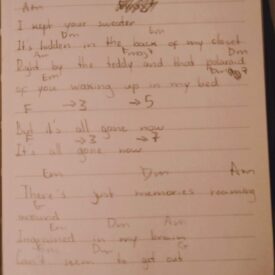 Am
I kept your sweater
Dm Em
It's hidden in the back of my closet
Am Fmaj7 Dm
Right by the teddy and that polaroid
Em
of you waking up in my bed
F →3 →5
But it's all gone now
→3 →7
It's all gone now
Em Dm Am
There's just memories roaming
around
Em Dm Am
Ingrained in my brain
Dm
Can't seem to get out